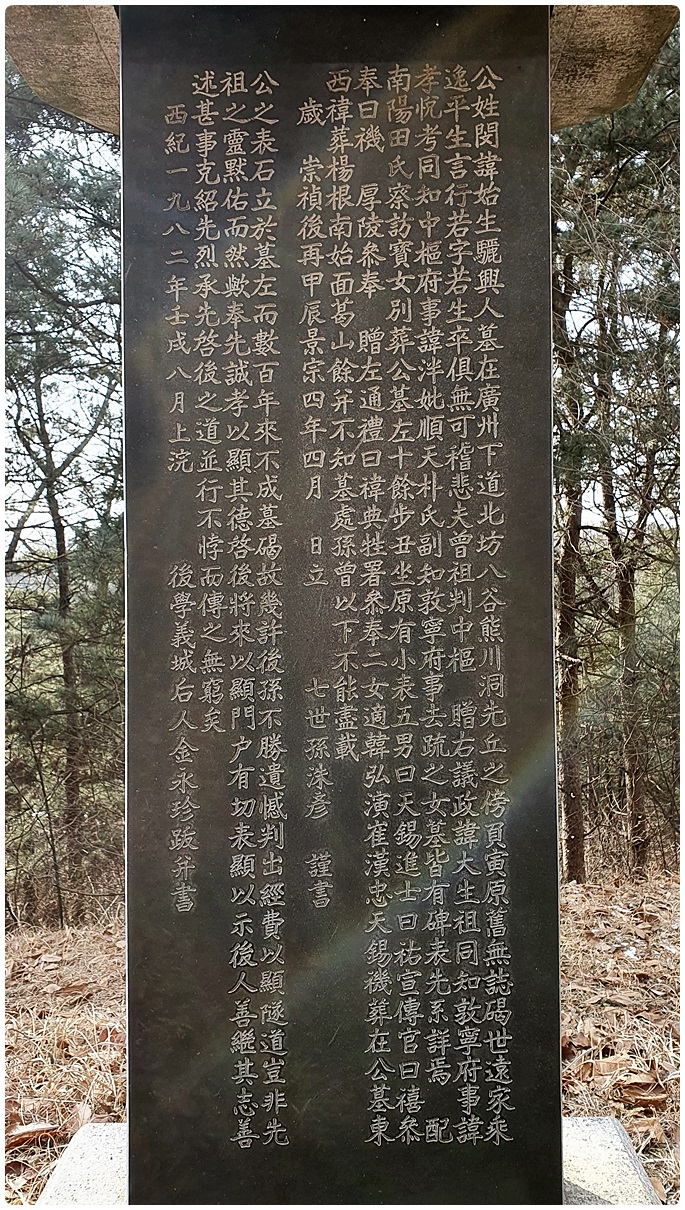 公姓閔諱始生驪興人墓在廣州下道北坊八谷熊川洞先丘之傍負寅原舊無誌碣世遠家乘
逸平生言行若字若生卒俱無可稽悲夫曾祖判中樞 贈右議政諱大生祖同知敦寧府事諱
孝悅考同知中樞府事諱泮妣順天朴氏副知敦寧府事去疏之女墓皆有碑表先系詳焉 配
南陽田氏察訪寶女別葬公墓左十餘步丑坐原有小表五男曰天錫進士曰祐宣傳官曰禧參
奉曰禨 厚陵參奉 贈左通禮曰禕典牲署參奉二女適韓弘演崔漢忠天錫禨葬在公墓東
西禕葬楊根南始面葛山餘并不知墓處孫曾以下不能盡載
歲 崇禎後再甲辰景宗四年四月 日立 七世孫洙彦 謹書
公之表石立於墓左而數百年來不成墓碣故幾許後孫不勝遺憾判出經費以顯隧道豈非先
祖之靈默佑而然歟奉先誠孝以顯其德啓後將來以顯門户有切表顯以示後人善繼其志善
述甚事克紹先烈承先啓後之道並行不悖而傳之無窮矣
西紀一九八二年壬戌八月上浣 後學義城后人金永珍跋并書